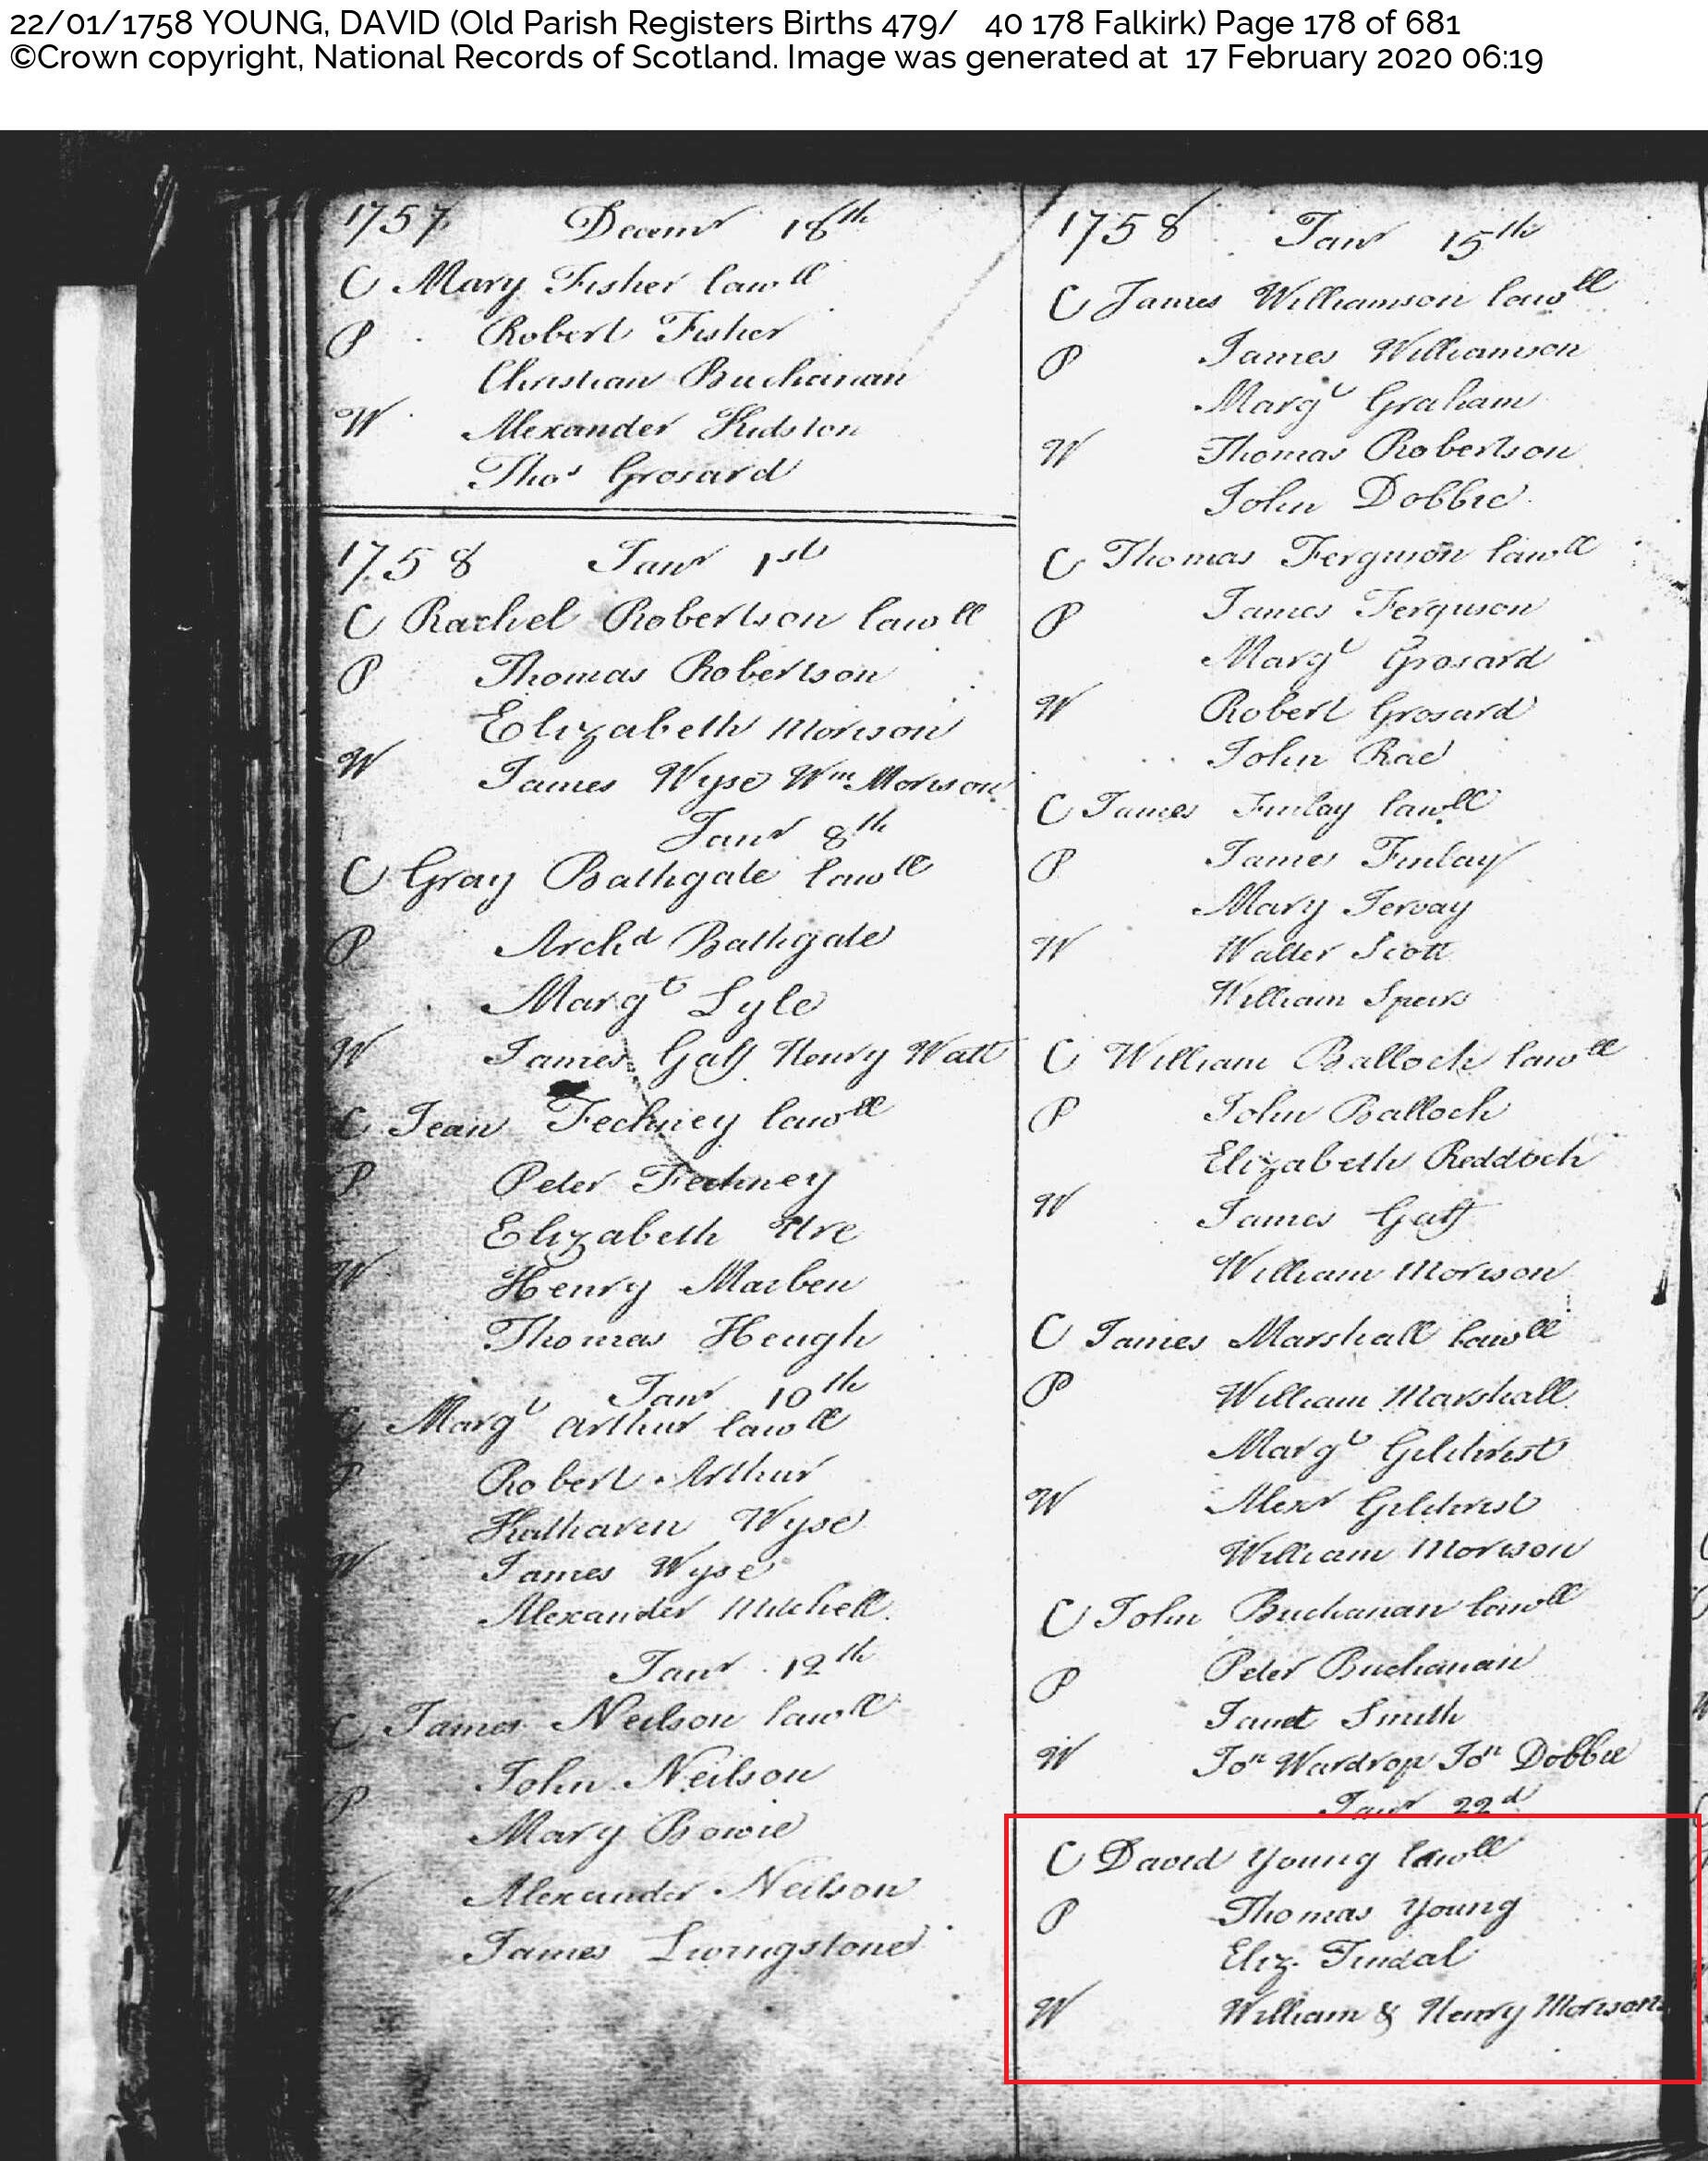 22/01/1758 YOUNG, DAVID (Old Parish Registers Births 479/ 40 178 Falkirk) Page 178 of 681
©Crown copyright, National Records of Scotland. Image was generated at 17 February 2020 06:19
1757 Decemr 18th
C Mary Fisher lawll
P Robert Fisher
Christian Buchanan
W Alexander Kidston
Thos Grosard
1758 Janr 1st
C Rachel Robertson lawll
P Thomas Robertson
Elizabeth Morison
W James Wyse Wm Morison
Janr 8th
C Gray Bathgate lawll
P Archd Bathgate
Margt Lyle
W James Gaff Henry Watt
C Jean Fechney lawll
P Peter Fechney
Elizabeth Ure
W Henry Marben
Thomas Heugh
Janr 10th
C Margt Arthur lawll
P Robert Arthur
Katharen Wyse
W James Wyse
Alexander Mitchell
Janr 12th
C James Neilson lawll
John Neilson
P
Mary Bowie
W Alexander Neilson
James Livingstone
1758 Janr 15th
C James Williamson lawll
P James Williamson
Margt Graham
W Thomas Robertson
John Dobbie
C Thomas Ferguson lawll
P James Ferguson
Margt Grosard
W Robert Grosard
John Rae
C James Finlay lawll
P James Finlay
Mary Jervay
W Walter Scott
William Speirs
C William Balloch lawll
P John Balloch
Elizabeth Reddoch
W James Gaff
William Morison
C James Marshall lawll
P William Marshall
Margt Gilchrist
W Alexr Gilchrist
William Morison
C John Buchanan lawll
P Peter Buchanan
Janet Smith
W Jon Wardrop Jon Dobbie
Janr 22d
C David Young lawll
P Thomas Young
Eliz. Tindal
W William & Henry Morisons